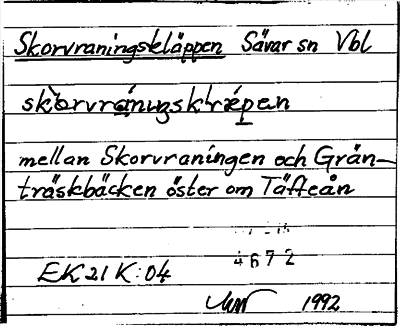 Skorvraningskläppen Sävar sn Vbl
mellan Skorvraningen och Grän-
träskbäcken öster om Täfteån
4672
EK 21 K:04
1992